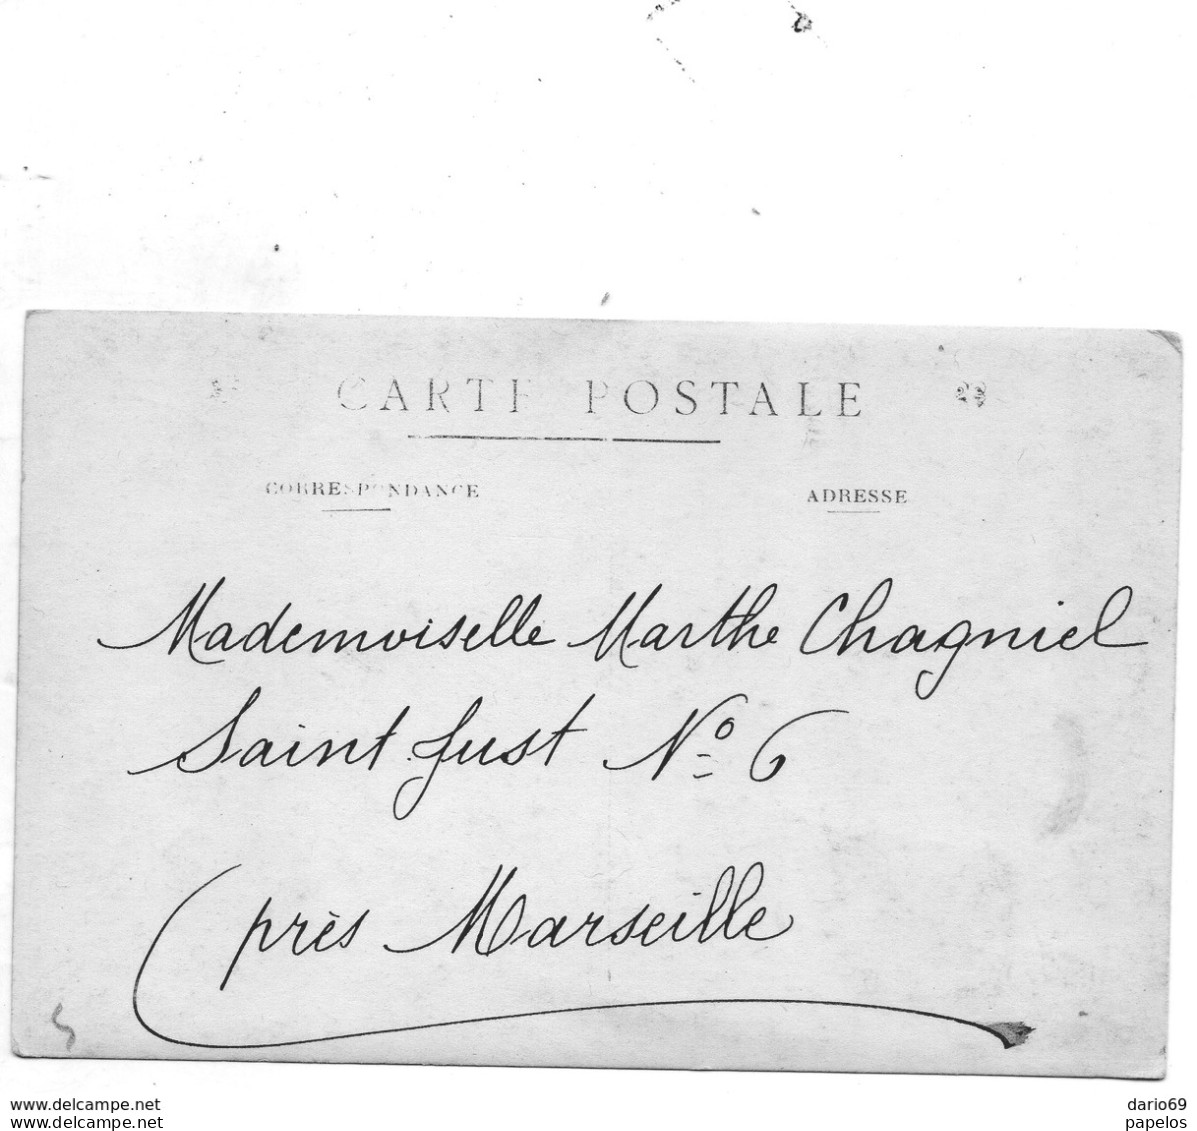 CARTE POSTALE
CORRESPONDANCE
ADRESSE
Mademoiselle Marthe Chagniel
Saint Just Nº 6
près Marseille
www.delcampe.net
www.delcampe.net
dario69
papelos